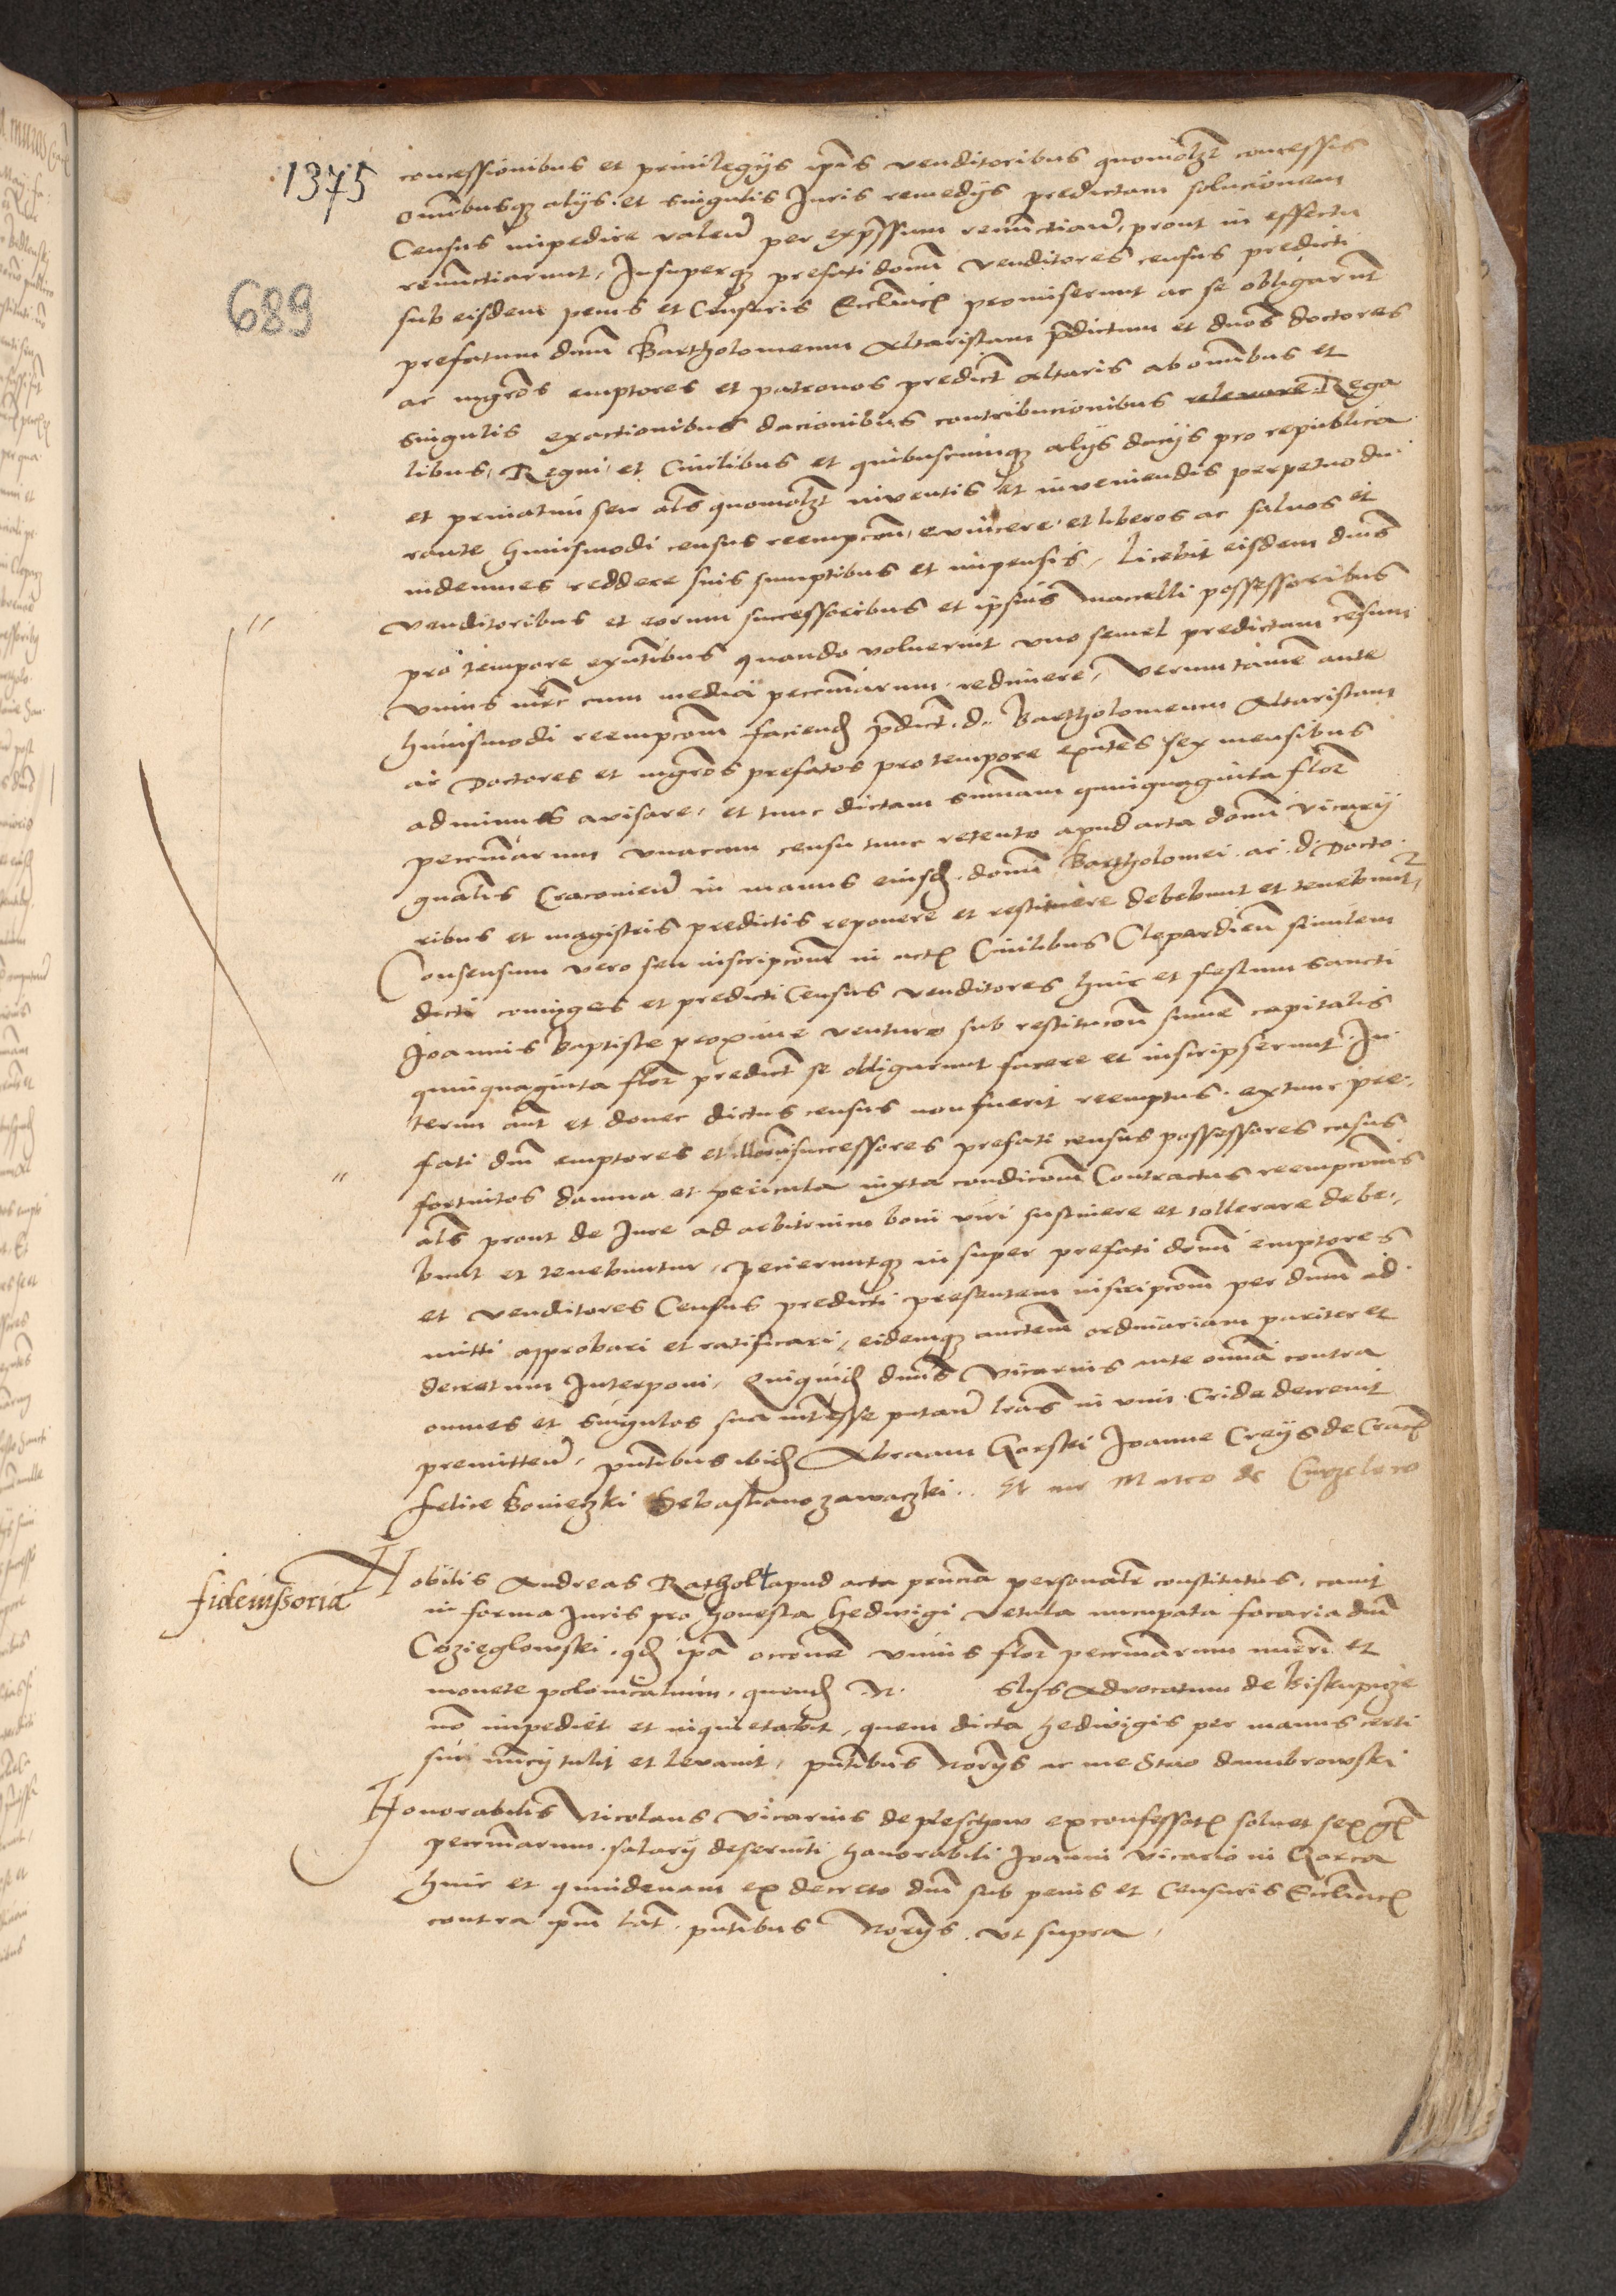 1375
689
concessionibus et privilegijs ipīs venditoribus quomolꝫt concessis
omībusqꝫ alijs et singulis Juris remedijs predictam solucionem
Census impedire valeñ per exp̄ssum renūctiañ, prout in effectu
renūctiarunt, Insuperqꝫ prefati domī venditores census predicti
sub eisdem penis et Censuris Eccliāticꝭ promiserunt ac se obligarūt
prefatum dnm̄ Bartholomeum Altaristam p̄dictum et dnōs doctores
ac mgrōs emptores et patronos predict̄ Altaris ab omībus et
singulis exactionibus dacionibus contribucionibus relevare Rega
libus, Regni, et Civilibus et quibuscunqꝫ alijs dacijs pro republica
et privatim seu als̄ quomolꝫt inventis et inveniendis perpetuo du
rante huiusmodi census reempcōn, evincere, et liberos ac salvos et
indemnes reddere suis sumptibus et impensis, Licebit eisdem dnīs
venditoribus et eorum successoribus et ipsius macelli possessoribus
pro tempore exn̄tibus quando voluerint uno semel predictam cēsum
unius mr̄c cum media pecūiarum redimere, Verumtamē ante
huiusmodi reempcōm faciendꝭ p̄dict̄. d. Bartholomeum Altaristam
ac Doctores et mgrōs prefatos pro tempore exn̄tēs sex mensibus
adminus avisare, et tunc dictam summam quinquaginta flor̄
pecūiarum unacum censu tunc retento apud acta domī vicarij
gnalis Cracovieñ in manus eiusdꝭ domī Bartholomei ac d. Docto
ribus et magistris predictis reponere et restituere debebunt et tenebunt̃,
Consensum vero seu inscripcōm in actꝭ Civilibus Clepardieñ similem
dicti coniuges et predicti Census venditores hinc et festum sancti
Joannis baptiste proxime venturo sub restitucōn sum̄e capitalis
quinquaginta flor̄ predict̄ se obligarunt facere et inscripserunt. In
terim aūt et donec dictus census non fuerit reemptus, extunc pre
fati dnī emptores et illorū successores prefati census possessores casus
fortuitos damna et pericula iuxta condicōm Contractus reempcōnis
als̄ prout de Jure ad arbitrium boni viri sustinere et tollerare debe
bunt et tenebuntur, Pecieruntqꝫ insuper prefati domī emptores
et venditores Census predicti presentem inscripcōm per dnm̄ ad
mitti approbari et ratificari, eidemqꝫ auctem̄ ordinariam pariter et
decretum Interponi, Quiquidꝭ dnūs Vicarius ante omnīa contra
omnes et singulos sua int̄esse putañ lrās in vim Cride decrevit
premitteñ, pn̄tibus ibidꝭ Abraam Gorski Joanne Creijs de Cracꝭ
Felice Bonieczki Sebastiano zawaczki. Et me Matco de Curzelow
fideiussoria
Nobilis Andreas Ratholt apud acta pn̄cia personalr̄ constitutus, cavit
in forma Juris pro honesta Hedwigi vetula nuncupata focaria dnī
Cozieglowski, qdꝭ ipā occōne unius flor̄ pecūiarum nu͂eri et
monete polonicalium, quendꝭ N. slijs Advocatum de Biskupicze
nō impediet et inquietabit, quem dicta Hedwigis per manus certi
sui nūcij tulit et levavit, pn̄tibus Norijs ac me Stāo dambrowski
Honorabilis Nicolaus Vicarius de pleschow ex confessatꝭ solvet sex gꝭ
pecūiarum salarij deserviti honorabili Joanni vicario in Garca
hinc et quindenam ex decreto dnī sub penis et Censuris Eccliāticꝭ
contra ipm̄ lāt. pn̄tibus Norijs. ut supra.